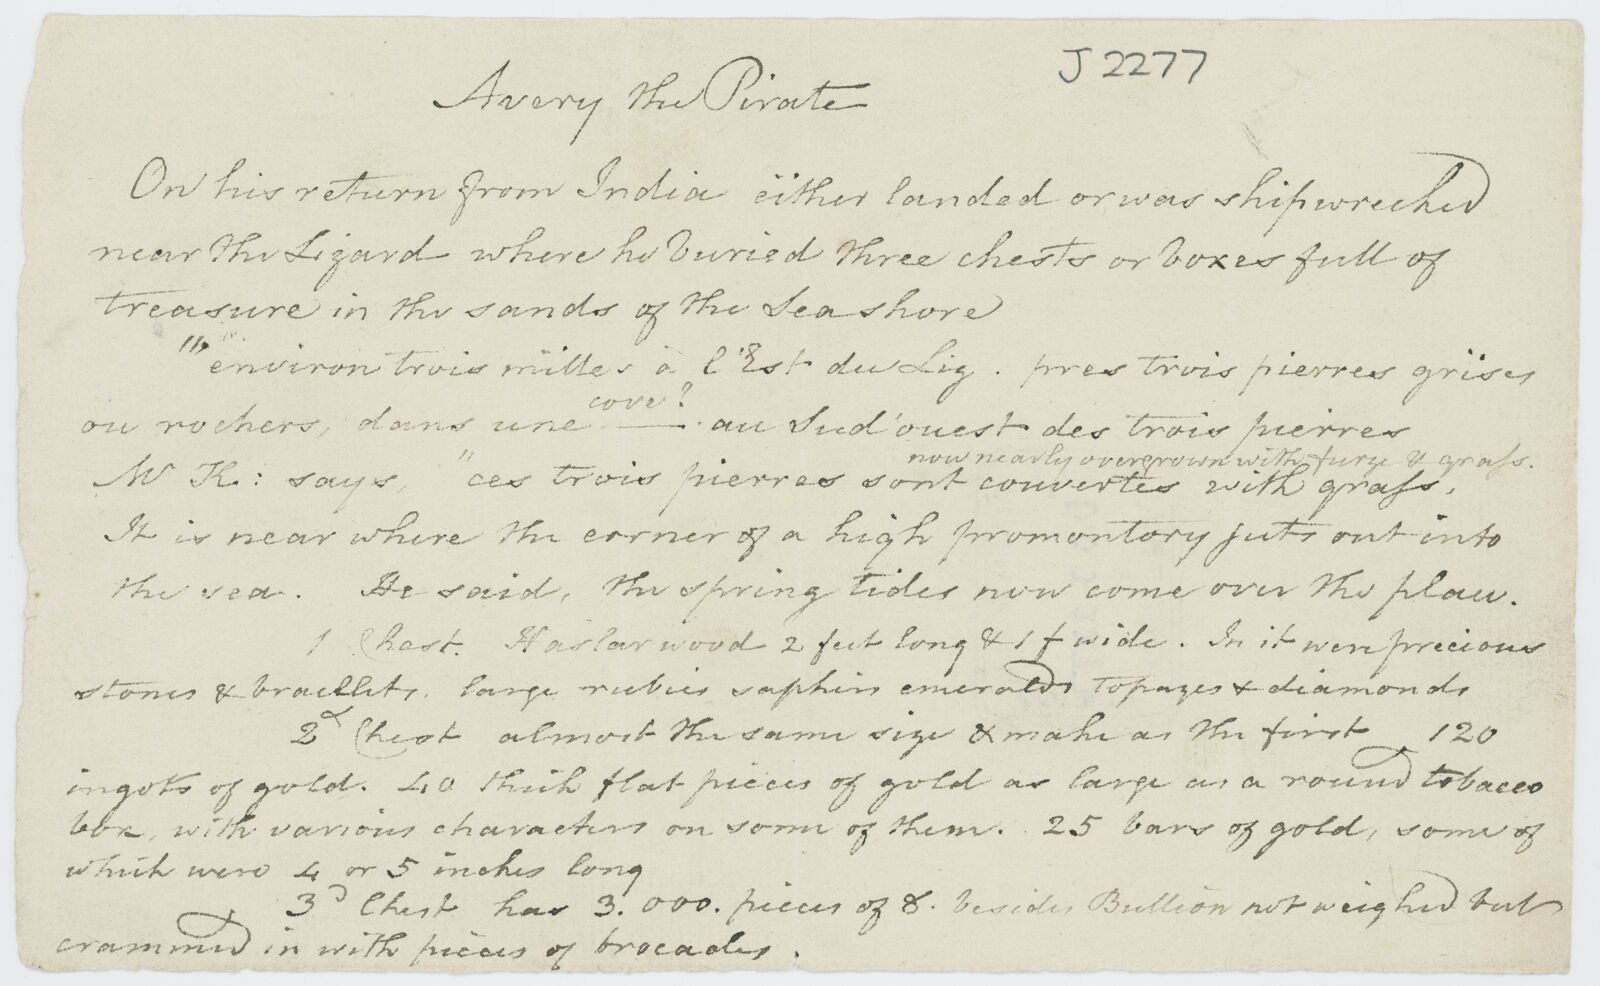 J 2277
Avery the Pirate
On his return from India either landed or was shipwrecked
near the Lizard where he buried three chests or boxes full of
treasure in the sands of the Sea shore
"environ trois milles à l'Est du Liz. pres trois pierres grises
cove?
ou rochers, dans une —— au Sud'ouest des trois pierres
now nearly overgrown with furze & grass.
Mr K: says, "ces trois pierres sont couvertes with grass,
It is near where the corner of a high promontory juts out into
the sea. He said, the spring tides now come over the place.
1 Chest. Haslar wood 2 feet long & 1 f wide. In it were precious
stones & bracllets. large rubies saphirs emeralds topazes & diamonds
2d Chest almost the same size & make as the first 120
ingots of gold. 40 thick flat pieces of gold as large as a round tobacco
box, with various characters on some of them. 25 bars of gold, some of
which were 4 or 5 inches long
3d Chest has 3.000. pieces of 8. besides Bullion not weighed but
crammed in with pieces of brocades.